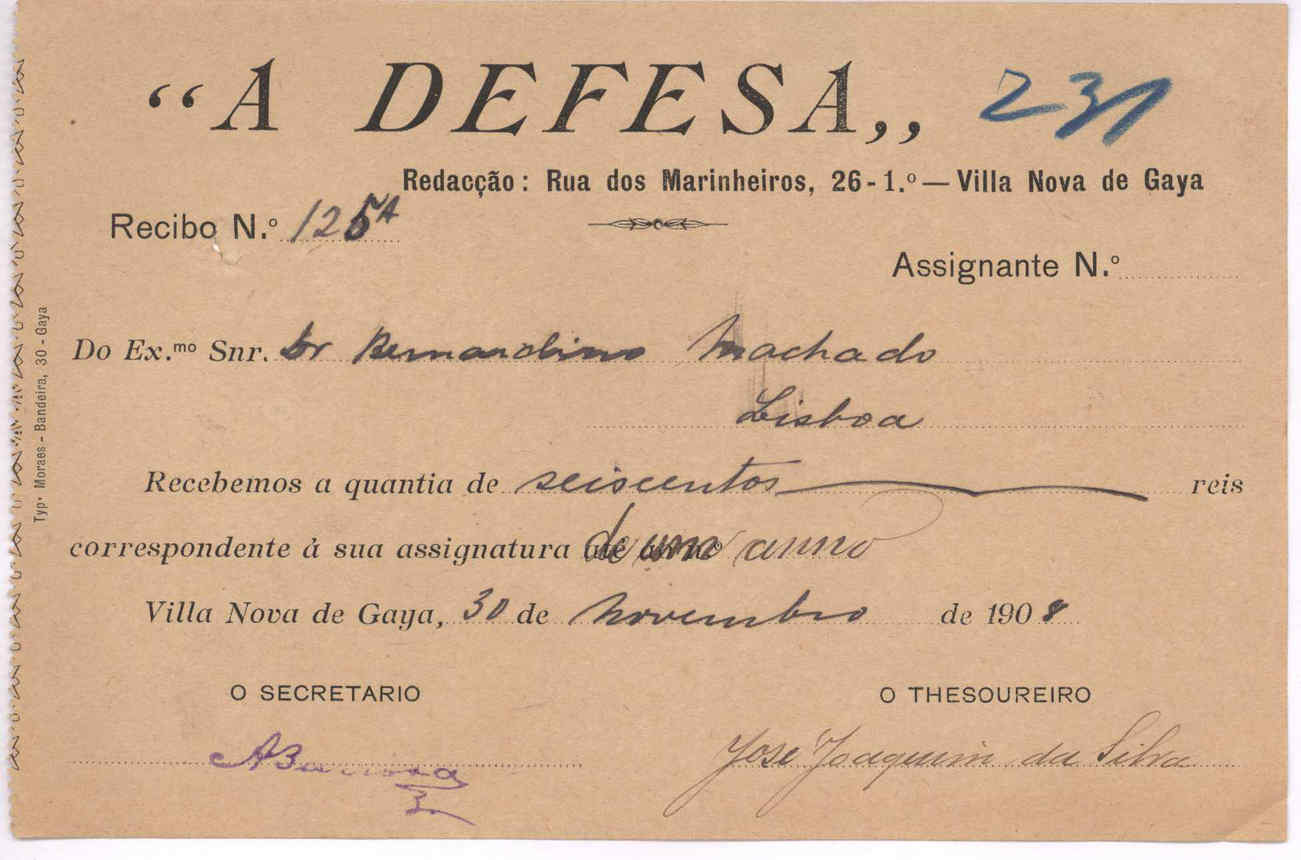 “A DEFESA„ 231
Redacção: Rua dos Marinheiros, 26-1.º — Villa Nova de Gaya
Recibo N.º 125A
Assignante N.º
Do Ex.mo Snr. Dr Bernardino Machado
Lisboa
Recebemos a quantia de seiscentos reis
correspondente á sua assignatura de um anno
Villa Nova de Gaya, 30 de Novembro de 1908
O SECRETARIO
O THESOUREIRO
José Joaquim da Silva
Typ. Moraes - Bandeira, 30 - Gaya